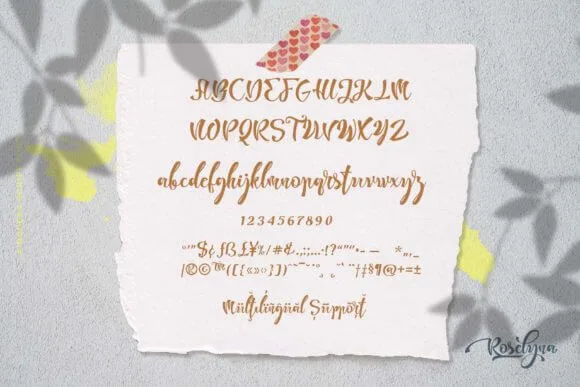 ABCDEFGHIJKLM
NOPQRSTUVWXYZ
abcdefghijklmnopqrstuvwxyz
1234567890
°'"$¢ƒß£¥%/#&.,:;...·!?"“”·- – *„,_
|®©™([{«»‹›}])
Mültilingüal Support
Roselyna